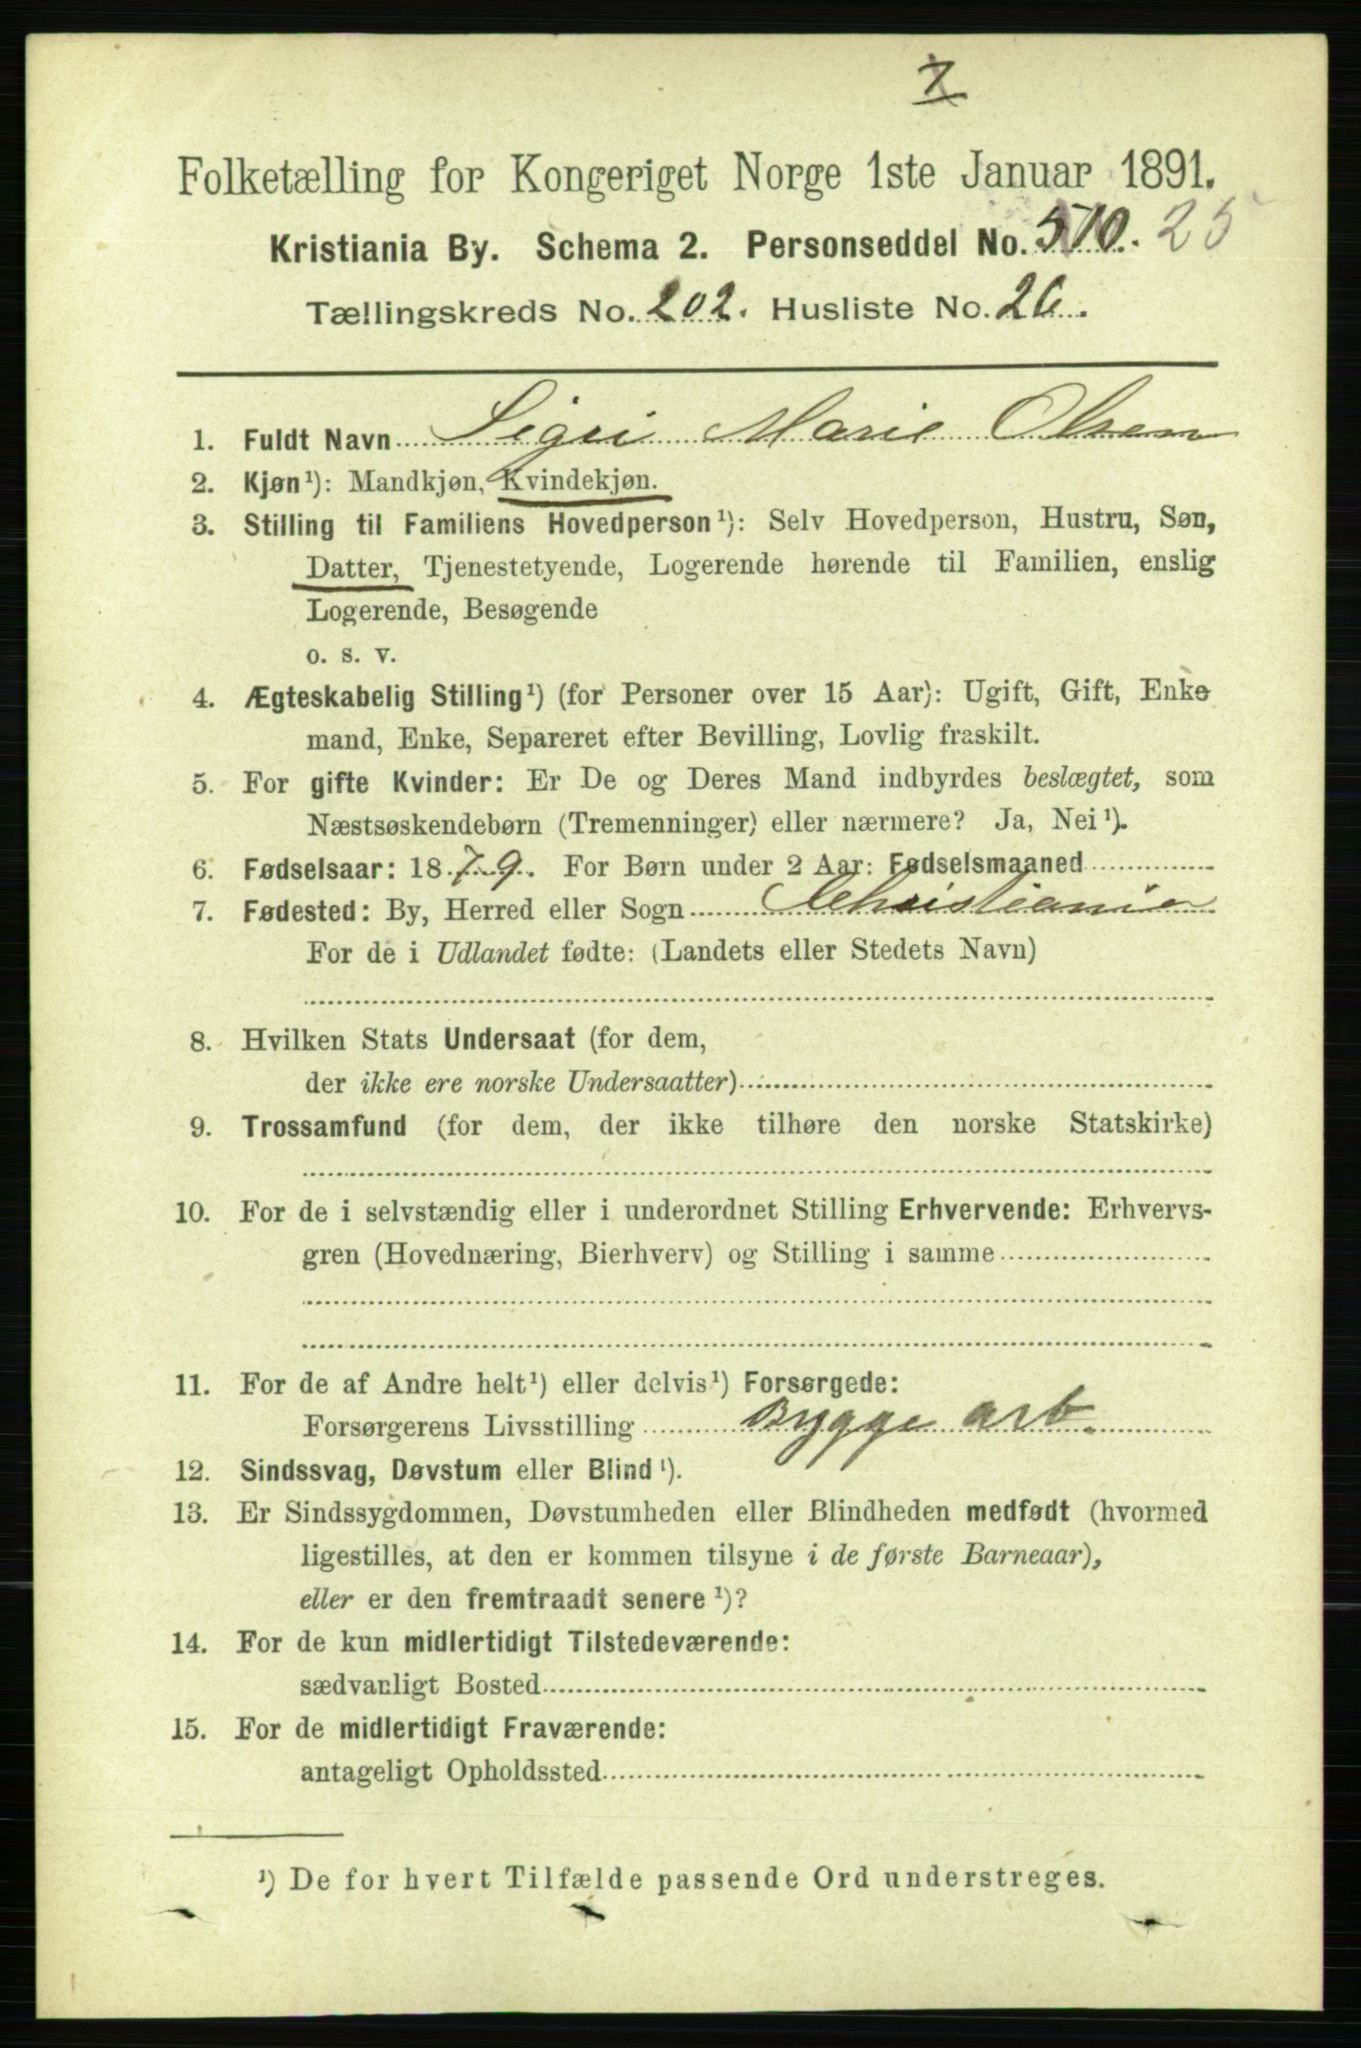 Folketælling for Kongeriget Norge 1ste Januar 1891.
Kristiania By. Schema 2. Personseddel No. 510. 25
Tællingskreds No. 202. Husliste No. 26.
1. Fuldt Navn Sigri Marie Olsen
2. Kjøn¹): Mandkjøn, Kvindekjøn.
3. Stilling til Familiens Hovedperson¹): Selv Hovedperson, Hustru, Søn,
Datter, Tjenestetyende, Logerende hørende til Familien, enslig
Logerende, Besøgende
o. s. v.
4. Ægteskabelig Stilling¹) (for Personer over 15 Aar): Ugift, Gift, Enke
mand, Enke, Separeret efter Bevilling, Lovlig fraskilt.
5. For gifte Kvinder: Er De og Deres Mand indbyrdes beslægtet, som
Næstsøskendebørn (Tremenninger) eller nærmere? Ja, Nei¹).
6. Fødselsaar: 1879. For Børn under 2 Aar: Fødselsmaaned
7. Fødested: By, Herred eller Sogn Christiania
For de i Udlandet fødte: (Landets eller Stedets Navn)
8. Hvilken Stats Undersaat (for dem,
der ikke ere norske Undersaatter)
9. Trossamfund (for dem, der ikke tilhøre den norske Statskirke)
10. For de i selvstændig eller i underordnet Stilling Erhvervende: Erhvervs-
gren (Hovednæring, Bierhverv) og Stilling i samme
11. For de af Andre helt¹) eller delvis¹) Forsørgede:
Forsørgerens Livsstilling Bygge arb.
12. Sindssvag, Døvstum eller Blind¹).
13. Er Sindssygdommen, Døvstumheden eller Blindheden medfødt (hvormed
ligestilles, at den er kommen tilsyne i de første Barneaar),
eller er den fremtraadt senere¹)?
14. For de kun midlertidigt Tilstedeværende:
sædvanligt Bosted
15. For de midlertidigt Fraværende:
antageligt Opholdssted
¹) De for hvert Tilfælde passende Ord understreges.